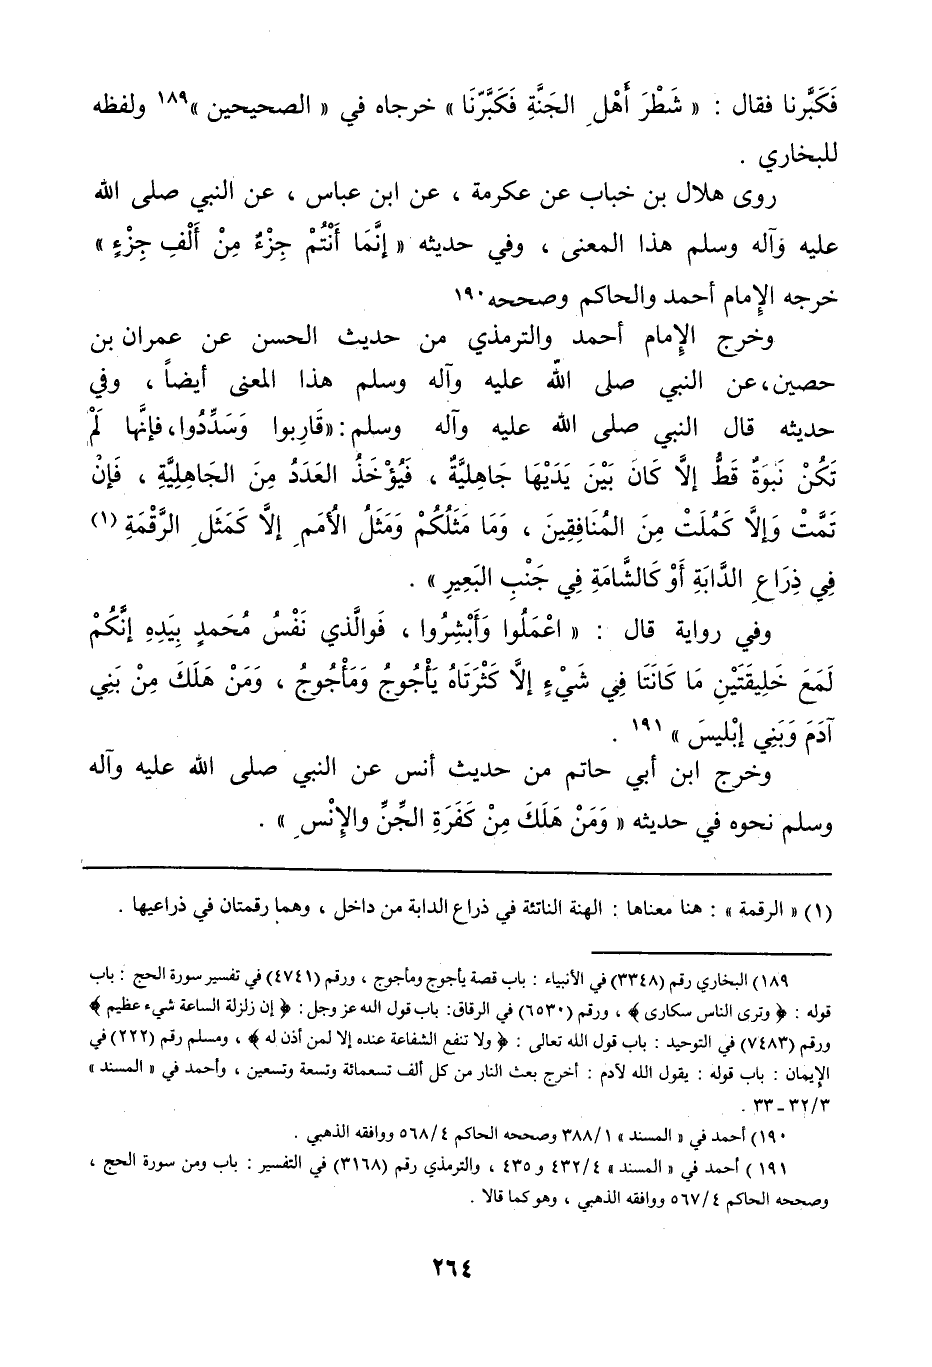 فَكَبَّرنا فقال : « شَطْرَ أَهْلِ الجَنَّةِ فَكَبَّرْنَا » خرجاه في « الصحيحين »١٨٩ ولفظه
للبخاري .
روى هلال بن خباب عن عكرمة ، عن ابن عباس ، عن النبي صلى الله
عليه وآله وسلم هذا المعنى ، وفي حديثه « إنَّمَا أَنْتُمْ جِزْءٌ مِنْ أَلْفِ جِزْءٍ »
خرجه الإمام أحمد والحاكم وصححه١٩٠
وخرج الإمام أحمد والترمذي من حديث الحسن عن عمران بن
حصين،عن النبي صلى الله عليه وآله وسلم هذا المعنى أيضاً ، وفي
حديثه قال النبي صلى الله عليه وآله وسلم:«قَارِبوا وَسَدِّدُوا،فإنَّها لَمْ
تَكُنْ نَبوَةٌ قَطُّ إلَّا كَانَ بَيْنَ يَدَيْهَا جَاهِليَّةٌ ، فَيُؤْخَذُ العَدَدُ مِنَ الجَاهِليَّةِ ، فَإنْ
تَمَّتْ وَإلَّا كَمُلَتْ مِنَ المُنَافِقِينَ ، وَمَا مَثَلُكُمْ وَمَثَلُ الأُمَمِ إلَّا كَمَثَلِ الرَّقْمَةِ (١)
فِي ذِرَاعِ الدَّابَةِ أَوْ كَالشَّامَةِ فِي جَنْبِ البَعِيرِ » .
وفي رواية قال : « اعْمَلُوا وَأَبْشِرُوا ، فَوالَّذي نَفْسُ مُحَمدٍ بِيَدِهِ إنَّكُمْ
لَمَعَ خَلِيقَتَيْنِ مَا كَانَتَا فِي شَيْءٍ إلَّا كَثْرَتَاهُ يَأْجُوجُ وَمَأْجُوجُ ، وَمَنْ هَلَكَ مِنْ بَنِي
آدَمَ وَبَنِي إبْليسَ » ١٩١ .
وخرج ابن أبي حاتم من حديث أنس عن النبي صلى الله عليه وآله
وسلم نحوه في حديثه « وَمَنْ هَلَكَ مِنْ كَفَرَةِ الجِّنِّ والإِنْسِ » .
(١) « الرقمة » : هنا معناها : الهنة الناتئة في ذراع الدابة من داخل ، وهما رقمتان في ذراعيها .
١٨٩) البخاري رقم (٣٣٤٨) في الأنبياء : باب قصة يأجوج ومأجوج ، ورقم (٤٧٤١) في تفسير سورة الحج : باب
قوله : ﴿ وترى الناس سكارى ﴾ ، ورقم (٦٥٣٠) في الرقاق: باب قول الله عز وجل: ﴿ إن زلزلة الساعة شيء عظيم ﴾
ورقم (٧٤٨٣) في التوحيد : باب قول الله تعالى : ﴿ ولا تنفع الشفاعة عنده إلا لمن أذن له ﴾ ، ومسلم رقم (٢٢٢) في
الإيمان : باب قوله : يقول الله لآدم : أخرج بعث النار من كل ألف تسعمائة وتسعة وتسعين ، وأحمد في « المسند »
٣٢/٣ - ٣٣ .
١٩٠) أحمد في « المسند » ٣٨٨/١ وصححه الحاكم ٥٦٨/٤ ووافقه الذهبي .
١٩١ ) أحمد في « المسند » ٤٣٢/٤ و ٤٣٥ ، والترمذي رقم (٣١٦٨) في التفسير : باب ومن سورة الحج ،
وصححه الحاكم ٥٦٧/٤ ووافقه الذهبي ، وهو كما قالا .
٢٦٤